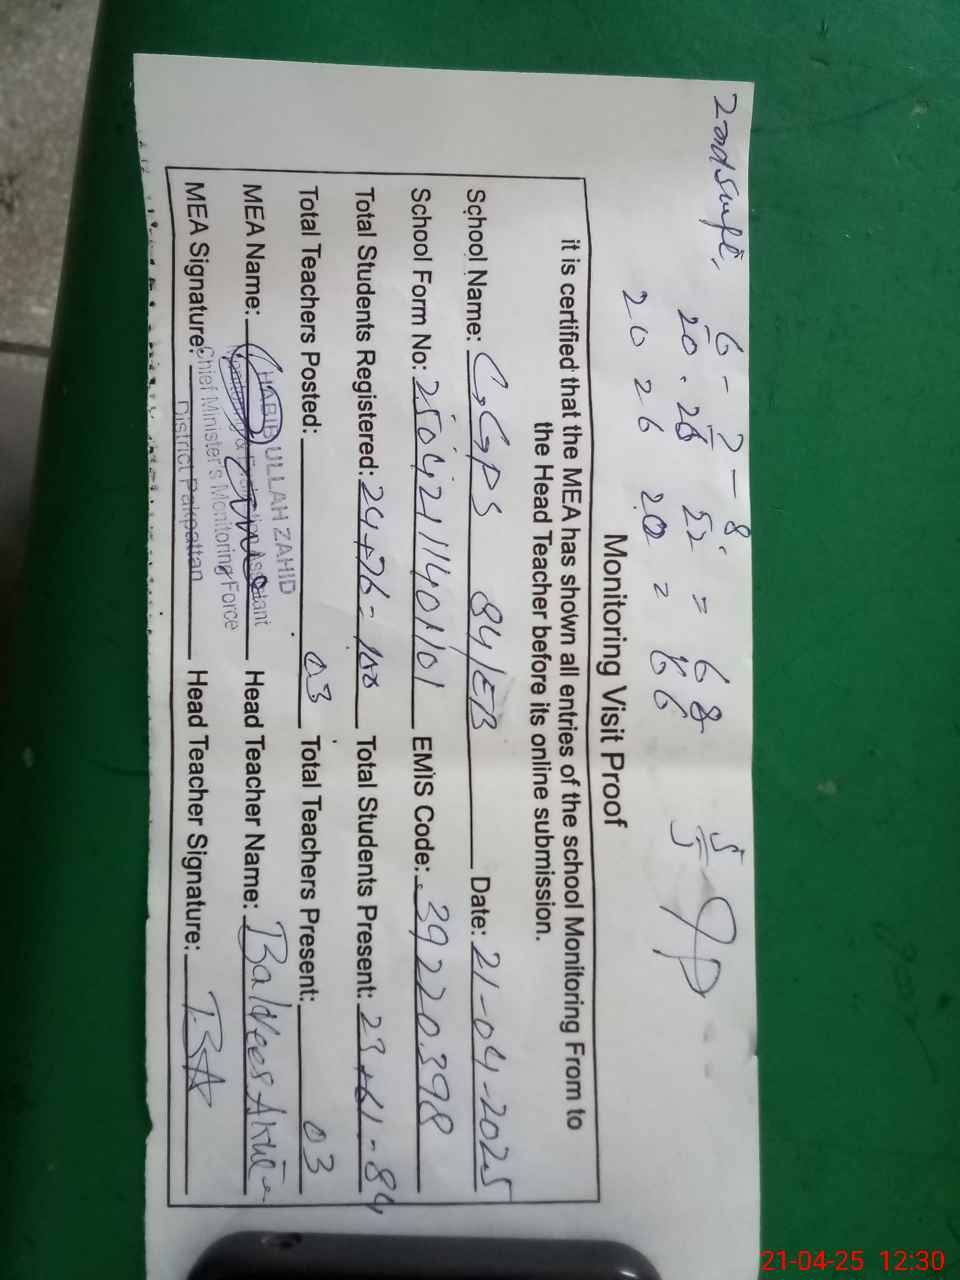 2nd Sample,
6 - 7 - 8.
20 . 26 22 = 68
20 26 20 = 66
Monitoring Visit Proof
it is certified that the MEA has shown all entries of the school Monitoring From to
the Head Teacher before its online submission.
School Name: GGPS 84/EB Date: 21-04-2025
School Form No: 2504211140101 EMIS Code: 39220398
Total Students Registered: 24+76=100 Total Students Present: 23+61-84
Total Teachers Posted: 03 Total Teachers Present: 03
MEA Name: Head Teacher Name: Akhter
HABIB ULLAH ZAHID
Monitoring & Evaluation Assistant
Chief Minister's Monitoring Force
District Pakpattan
MEA Signature: Head Teacher Signature: BA
21-04-25 12:30